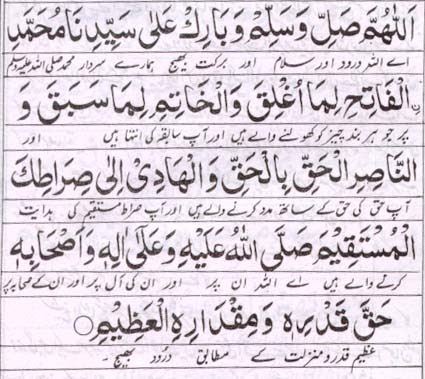 اَللّٰهُمَّ صَلِّ وَسَلِّمْ وَبَارِكْ عَلٰى سَيِّدِنَا مُحَمَّدِ
اے اللہ درود اور سلام اور برکت بھیج ہمارے سردار محمد صلی اللہ علیہ وسلم
نِ الْفَاتِحِ لِمَا اُغْلِقَ وَالْخَاتِمِ لِمَا سَبَقَ وَ
پر جو ہر بند چیز کو کھولنے والے ہیں اور آپ سابقہ کی انتہا ہیں اور
النَّاصِرِ الْحَقِّ بِالْحَقِّ وَالْهَادِيْ اِلٰى صِرَاطِكَ
آپ حق کی حق کے ساتھ مدد کرنے والے ہیں اور آپ صراط مستقیم کی ہدایت
الْمُسْتَقِيْمِ صَلَّى اللّٰهُ عَلَيْهِ وَعَلٰى اٰلِهٖ وَاَصْحَابِهٖ
کرنے والے ہیں اے اللہ ان پر اور ان کی آل پر اور ان کے صحابہ پر
حَقَّ قَدْرِهٖ وَمِقْدَارِهِ الْعَظِيْمِ ○
عظیم قدر و منزلت کے مطابق درود بھیج ۔